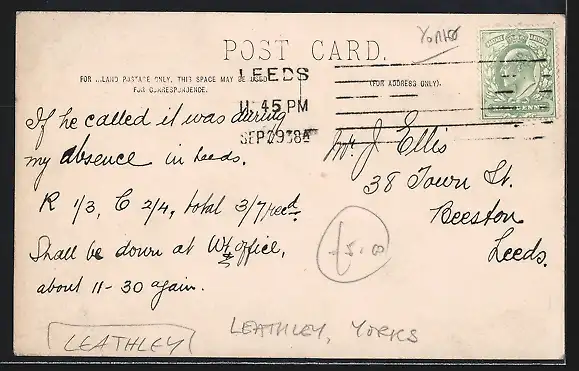 POST CARD.
Yorks
FOR INLAND POSTAGE ONLY, THIS SPACE MAY BE USED
FOR CORRESPONDENCE.
(FOR ADDRESS ONLY).
LEEDS
11.45 PM
SEP 29
If he called it was during
my absence in Leeds.
R 1/3, C 2/4, total 3/7 recd.
Shall be down at Wt office,
about 11-30 again.
Mr. J. Ellis
38 Town St.
Beeston
Leeds.
£5.
LEATHLEY
LEATHLEY, YORKS